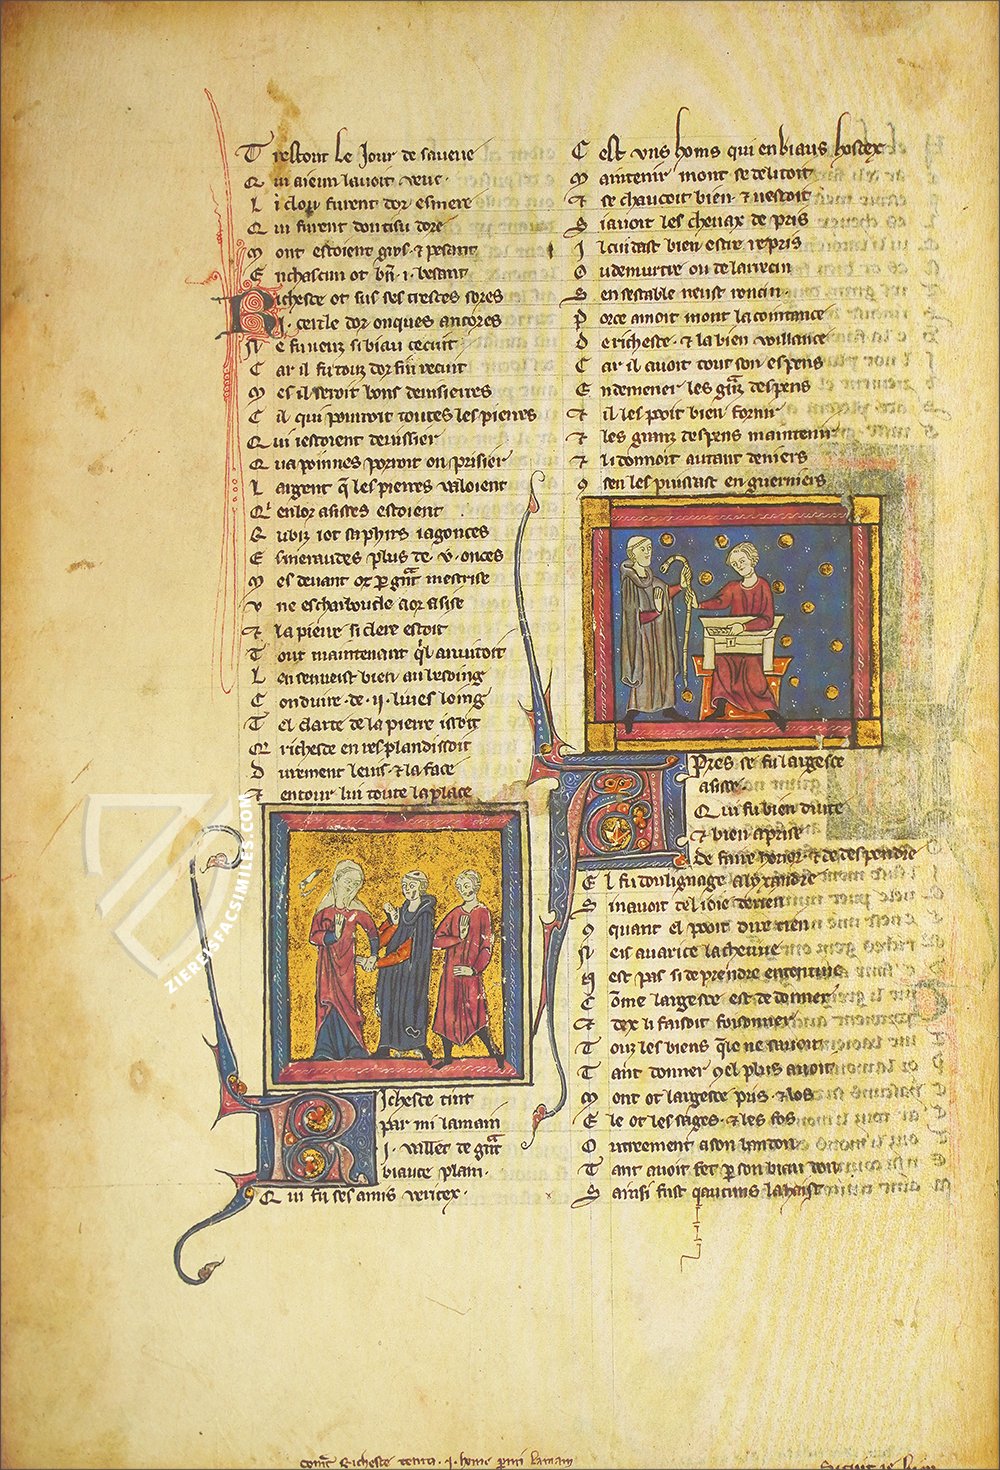 Trestout le Jour de saveue
Qui aieun lavoit veue·
Li clou furent dor esmere
Qui furent dou tisu dore
Mont estoient gros · ⁊ pesant
En chascun ot bñ ·i· besant
Richesce ot sus ses tresces sores
·i· cercle dor onques ancores
Ne fu veuz si biau ce cuit
Car il fu touz dor fin recuit
Mes il seroit bons devisierres
Cil qui pourroit toutes les pierres
Qui i estoient devissier
Qua poinnes porroit on prisier
Largent q̃ les pierres valoient
Qi en lor asises estoient
Rubiz i ot saphirs iagonces
Esmeraudes plus de ·v· onces
Mes devant ot p grãt mestrise
Vne escharboucle
⁊ la pierre si clere estoit
Tout maintenant qͥl anuitoit
Len se veist bien au besoing
Conduire ·de ·ij· liues loing
Tel clarte de la pierre issoit
Q richesce en resplandissoit
Durement le vis · ⁊ la face
⁊ entour lui toute la place
Richesce tint
par mi la main
·i· vallet de grãt
biaute plain·
Qui fu ses amis veritex·
Cest vns homs qui en biaus hostex
Maintenir mont se delitoit
⁊ se chaucoit bien · ⁊ vestoit
Si avoit les chevax de pris
Il cuidast bien estre repris
Ou de murtre ou de larrecin
Sen sestable neust roncin
Por ce amoit mont la cointance
De richesce · ⁊ la bien voillance
Car il avoit tout son espens
En demener les grãz despens
⁊ il les poit bien fornir
⁊ les granz despens maintenir
⁊ li donnoit autant deniers
9 sen les puisast en guerniers
Apres ce fu largesce
asisse·
Qui fu bien duite
⁊ bien aprise
De faire honor · ⁊ de despendre
El fu dou lignage alixandre
Si navoit tel ioie de rien
9 quant el pooit dire tien
Neis avarice la chetive
Nest pas si de prendre ententive
Cõme largesce est de donner
⁊ dex li faisoit foisonner
Touz les biens q̃le ne savoit
Tant donner 9 el plus avoit
Mont ot largesce pris · ⁊ los
Ele ot les sages · ⁊ les fos
Outreement a son bandon
Tant avoit fet p son biau don
Sainsi fust qaucuns la haist
Richesce tenra ·i· home pmi la main
ZIEREISFACSIMILES.COM